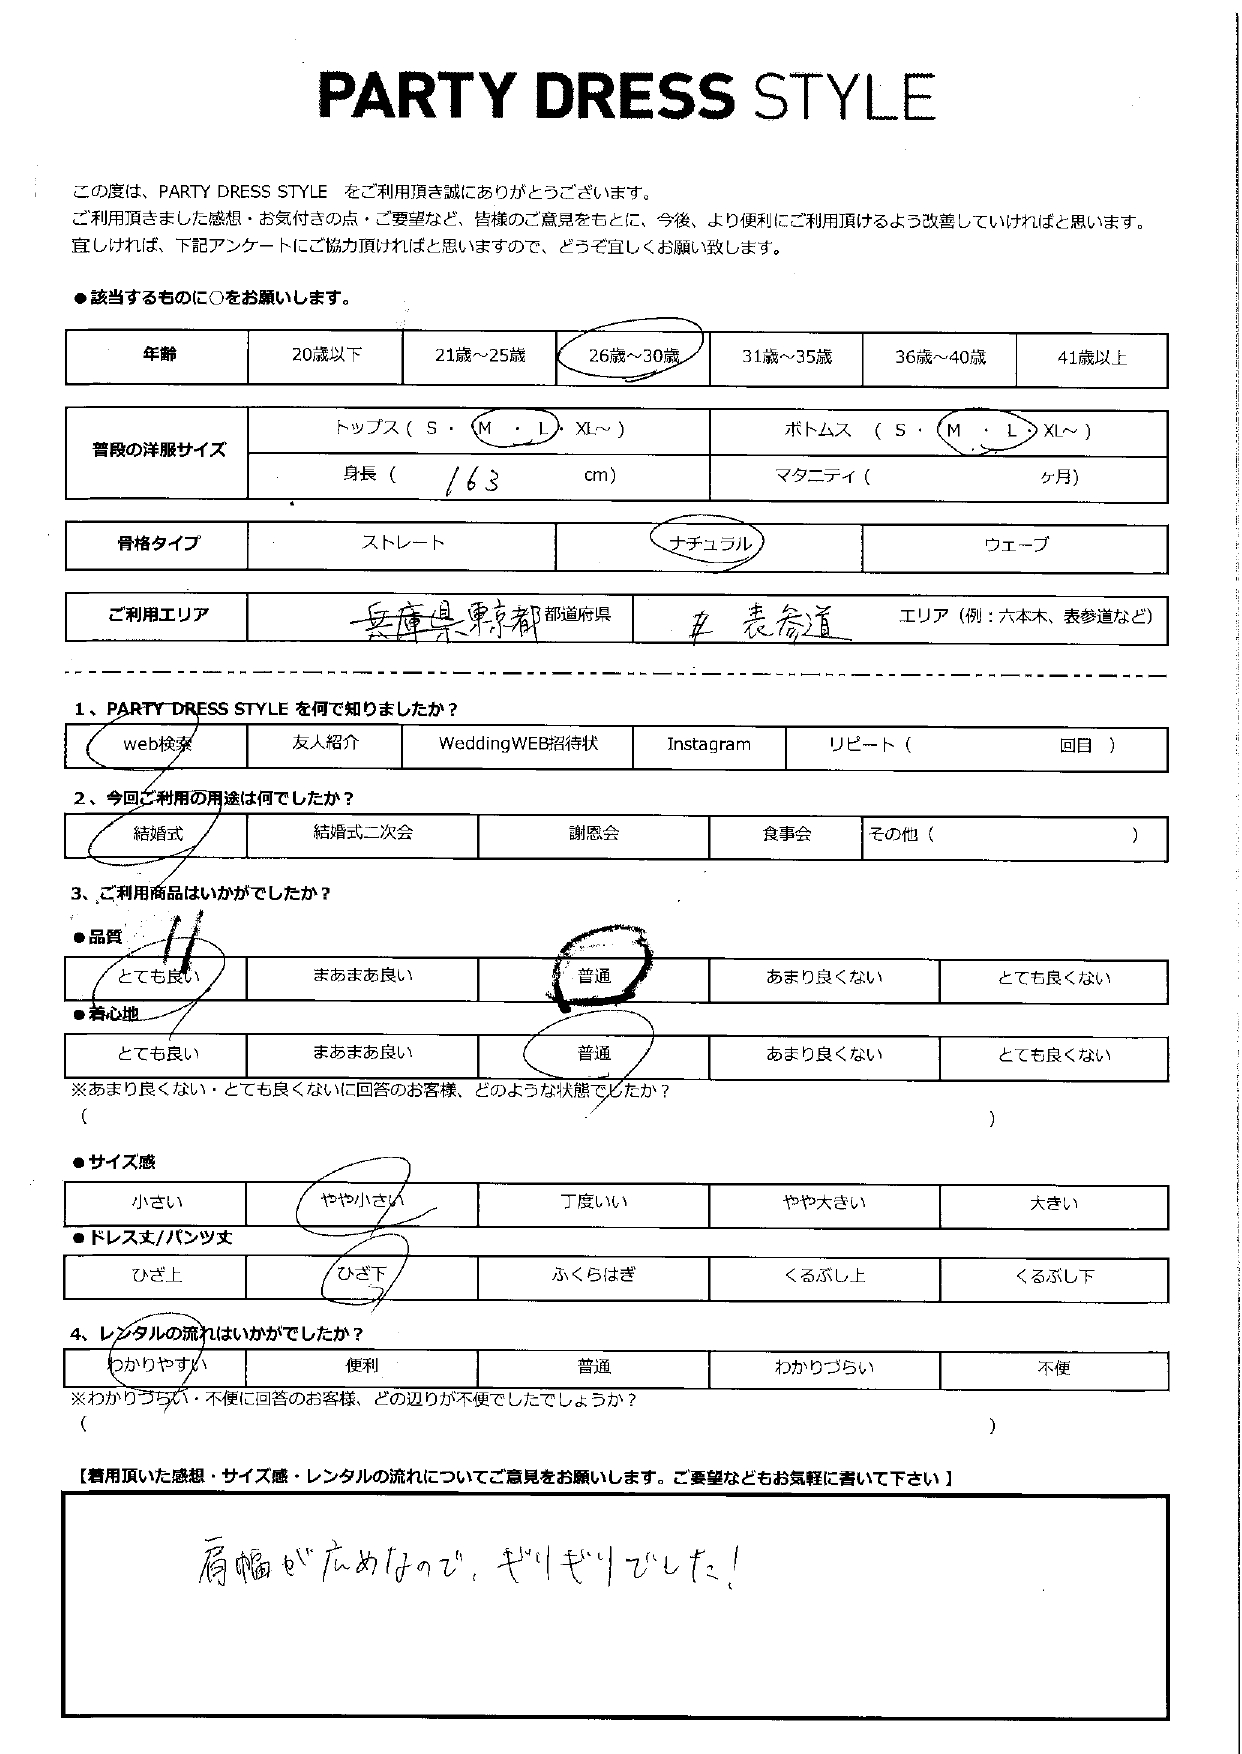 PARTY DRESS STYLE
この度は、PARTY DRESS STYLE をご利用頂き誠にありがとうございます。
ご利用頂きました感想・お気付きの点・ご要望など、皆様のご意見をもとに、今後、より便利にご利用頂けるよう改善していければと思います。
宜しければ、下記アンケートにご協力頂ければと思いますので、どうぞ宜しくお願い致します。
●該当するものに○をお願いします。
年齢 20歳以下 21歳～25歳 26歳～30歳 31歳～35歳 36歳～40歳 41歳以上
普段の洋服サイズ
トップス ( S ・ M ・ L ・ XL～ ) ボトムス ( S ・ M ・ L ・ XL～ )
身長 ( 163 cm) マタニティ ( ヶ月)
骨格タイプ ストレート ナチュラル ウェーブ
ご利用エリア 兵庫県東京都 都道府県 表参道 エリア（例：六本木、表参道など）
1、PARTY DRESS STYLE を何で知りましたか？
web検索 友人紹介 WeddingWEB招待状 Instagram リピート ( 回目 )
2、今回ご利用の用途は何でしたか？
結婚式 結婚式二次会 謝恩会 食事会 その他 ( )
3、ご利用商品はいかがでしたか？
●品質
とても良い まあまあ良い 普通 あまり良くない とても良くない
●着心地
とても良い まあまあ良い 普通 あまり良くない とても良くない
※あまり良くない・とても良くないに回答のお客様、どのような状態でしたか？
( )
●サイズ感
小さい やや小さい 丁度いい やや大きい 大きい
●ドレス丈/パンツ丈
ひざ上 ひざ下 ふくらはぎ くるぶし上 くるぶし下
4、レンタルの流れはいかがでしたか？
わかりやすい 便利 普通 わかりづらい 不便
※わかりづらい・不便に回答のお客様、どの辺りが不便でしたでしょうか？
( )
【着用頂いた感想・サイズ感・レンタルの流れについてご意見をお願いします。ご要望などもお気軽に書いて下さい 】
肩幅が広めなので、ギリギリでした！